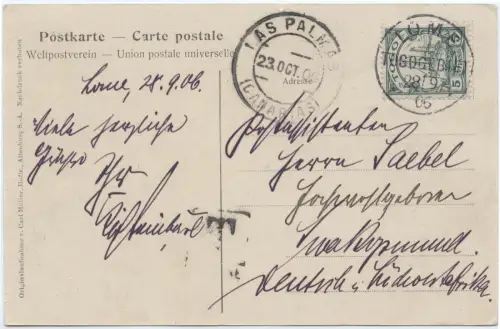 Postkarte — Carte postale
Weltpostverein — Union postale universelle
Adresse
LAS PALMAS
23 OCT. 06
(CANARIAS)
LOME
TOGOGEBIET
28/9
06
TOGO
5
Lome, 28.9.06.
Viele herzliche
Grüße
Ihr
Postassistenten
Herrn Saebel
Hochwohlgeboren
Swakopmund.
Deutsch-Südwestafrika.
Originalaufnahme v. Carl Müller, Hoflt., Altenburg S.-A. Nachdruck verboten